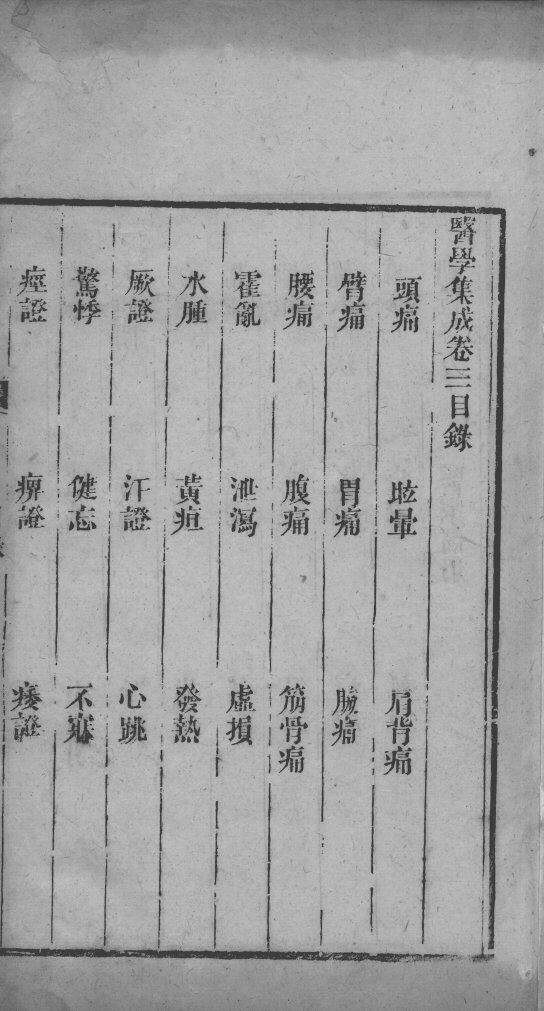 醫學集成卷三目錄
頭痛　眩暈　肩背痛
臂痛　胃痛　脇痛
腰痛　腹痛　筋骨痛
霍亂　泄瀉　虛損
水腫　黃疸　發熱
厥證　汗證　心跳
驚悸　健忘　不寐
痙證　痹證　痿證